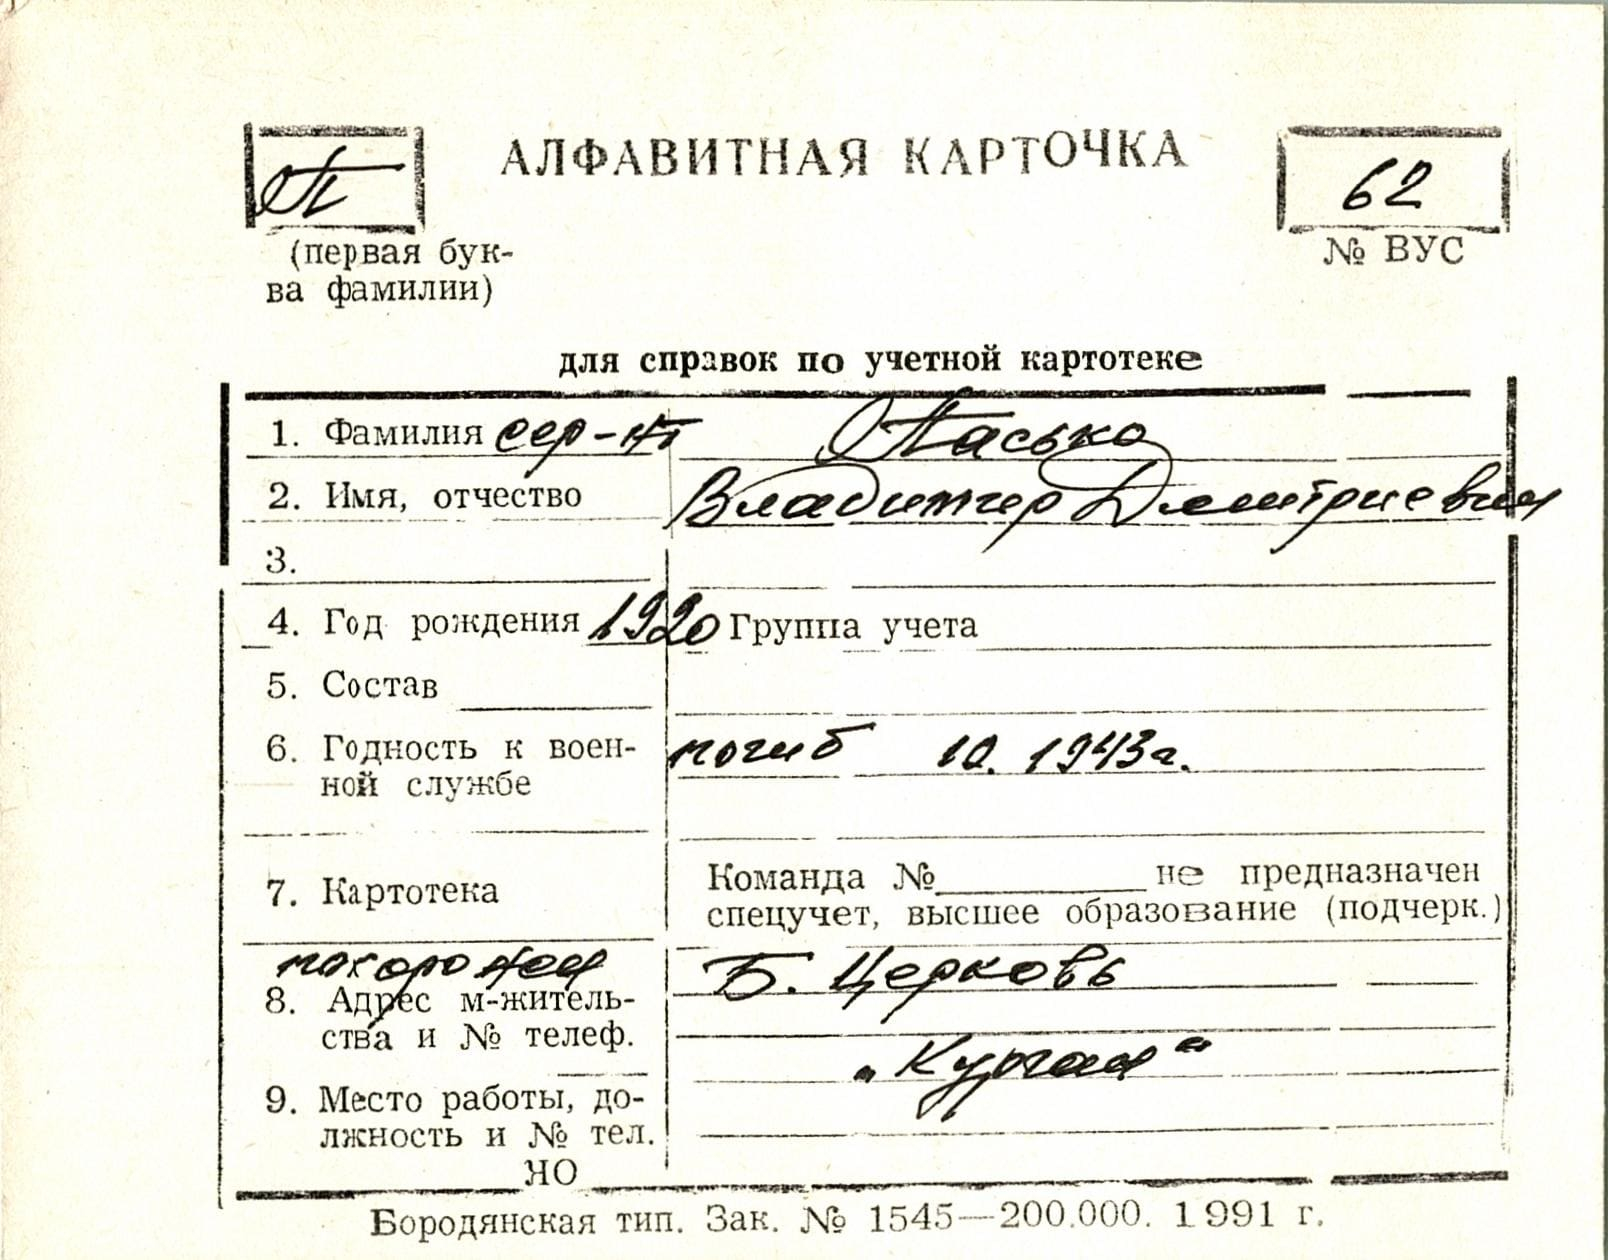 П АЛФАВИТНАЯ КАРТОЧКА 62
(первая бук-
ва фамилии)
№ ВУС
для справок по учетной картотеке
1. Фамилия сер-нт Пасько
2. Имя, отчество Владимир Дмитриевич
3.
4. Год рождения 1920 Группа учета
5. Состав
6. Годность к воен-
ной службе
погиб 10. 1943г.
7. Картотека
Команда №__________не предназначен
спецучет, высшее образование (подчерк.)
похоронен Б. Церковь
8. Адрес м-житель-
ства и № телеф.
„Курган“
9. Место работы, до-
лжность и № тел.
НО
Бородянская тип. Зак. № 1545—200.000. 1991 г.